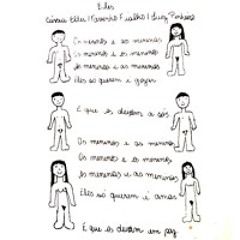 Eles
Cássia Eller / Nasinho Fialho / Luiz Pinheiro
Os meninos e as meninas
Os meninos e os meninos
As meninas e as meninas
Eles só querem é gozar
E que os deixem a sós
Os meninos e as meninas
Os meninos e os meninos
As meninas e as meninas
Eles só querem é amar
E que os deixem em paz